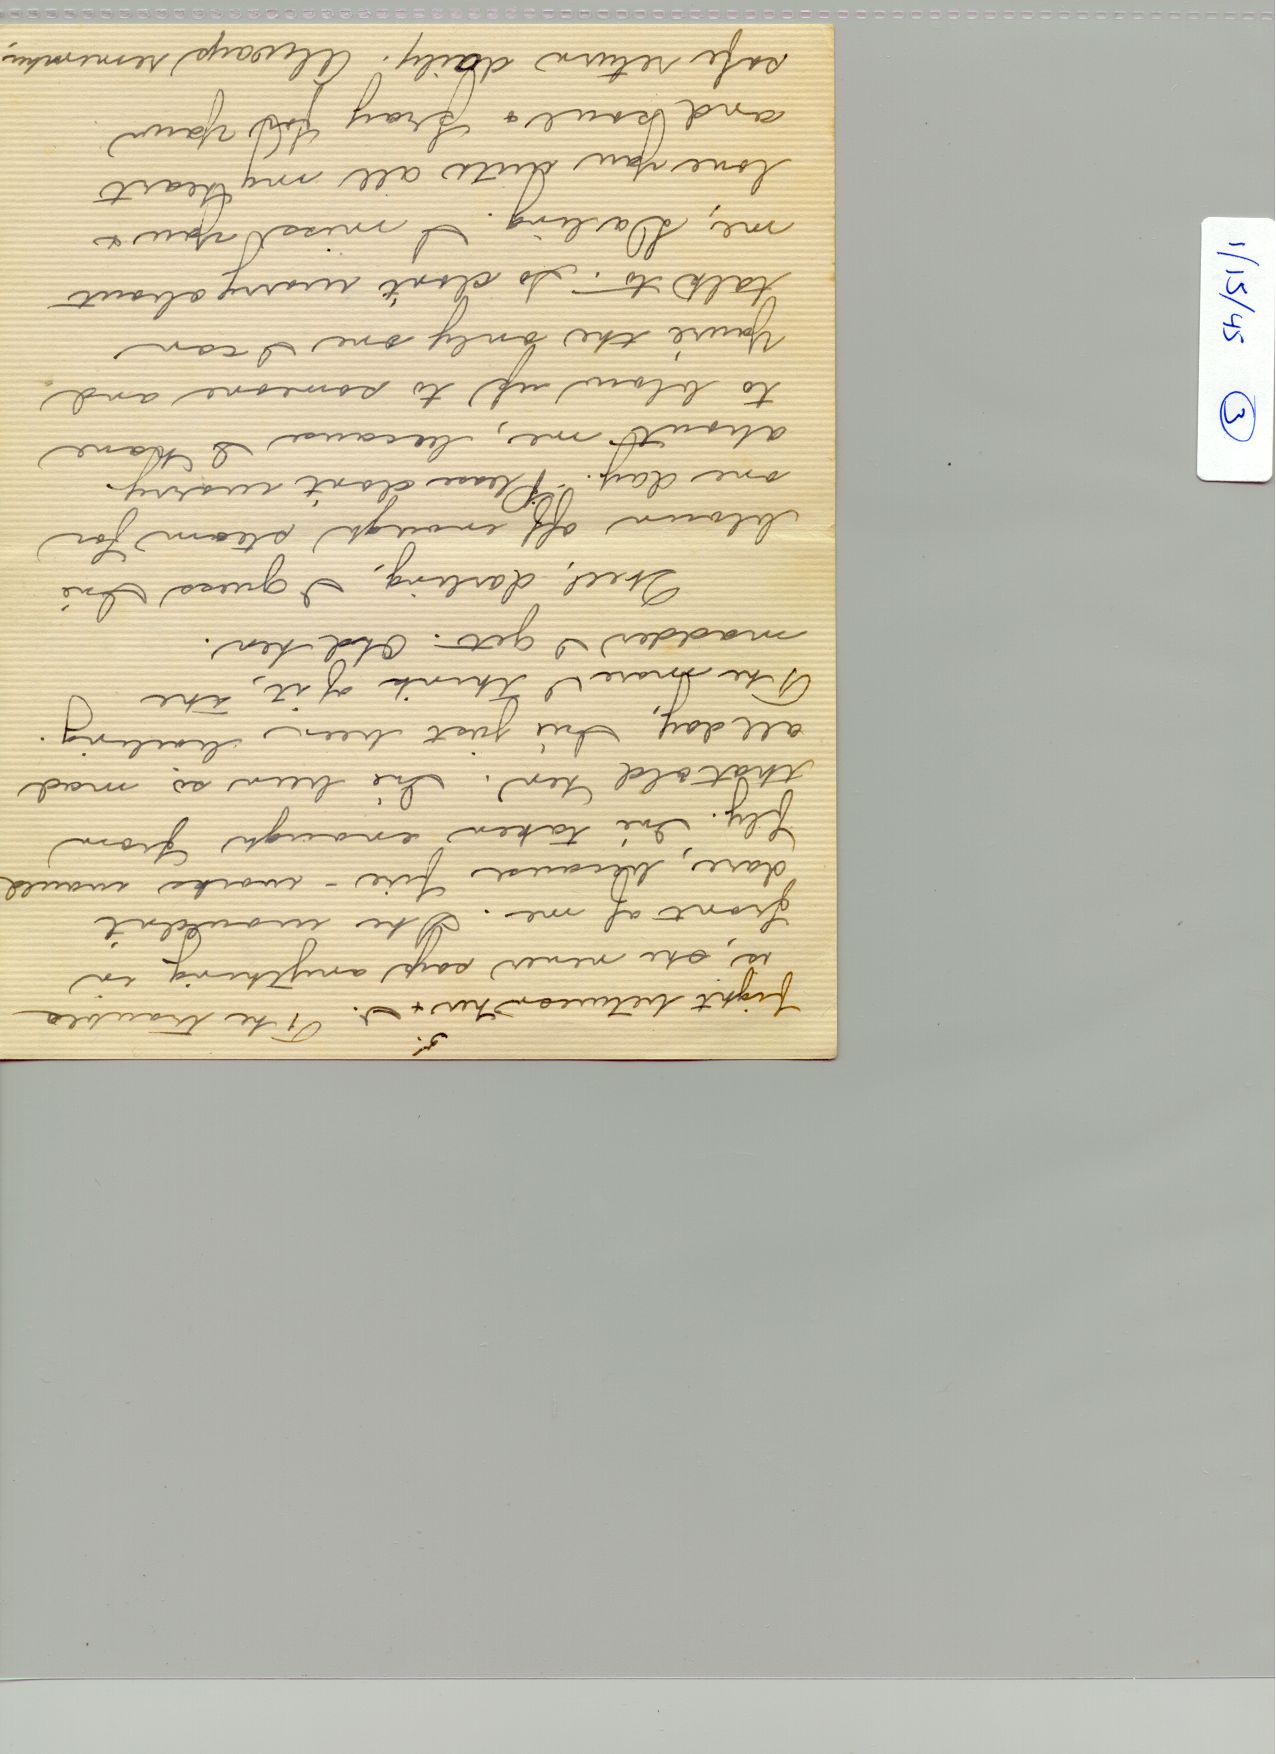 5.
fight between her + I. The trouble
is, she never says anything in
front of me. She wouldn't
dare, because fire-works would
fly. I've taken enough from
that old hen. I've been so mad
all day, I've just been boiling.
The more I think of it, the
madder I get. Old hen.
Well, darling, I guess I've
blown off enough steam for
one day. Please don't worry
about me, because I have
to blow up to someone and
you're the only one I can
talk to. So don't worry about
me, Darling. I miss you +
love you with all my heart
and soul + pray for your
safe return daily. Always remember,
1/15/45 3